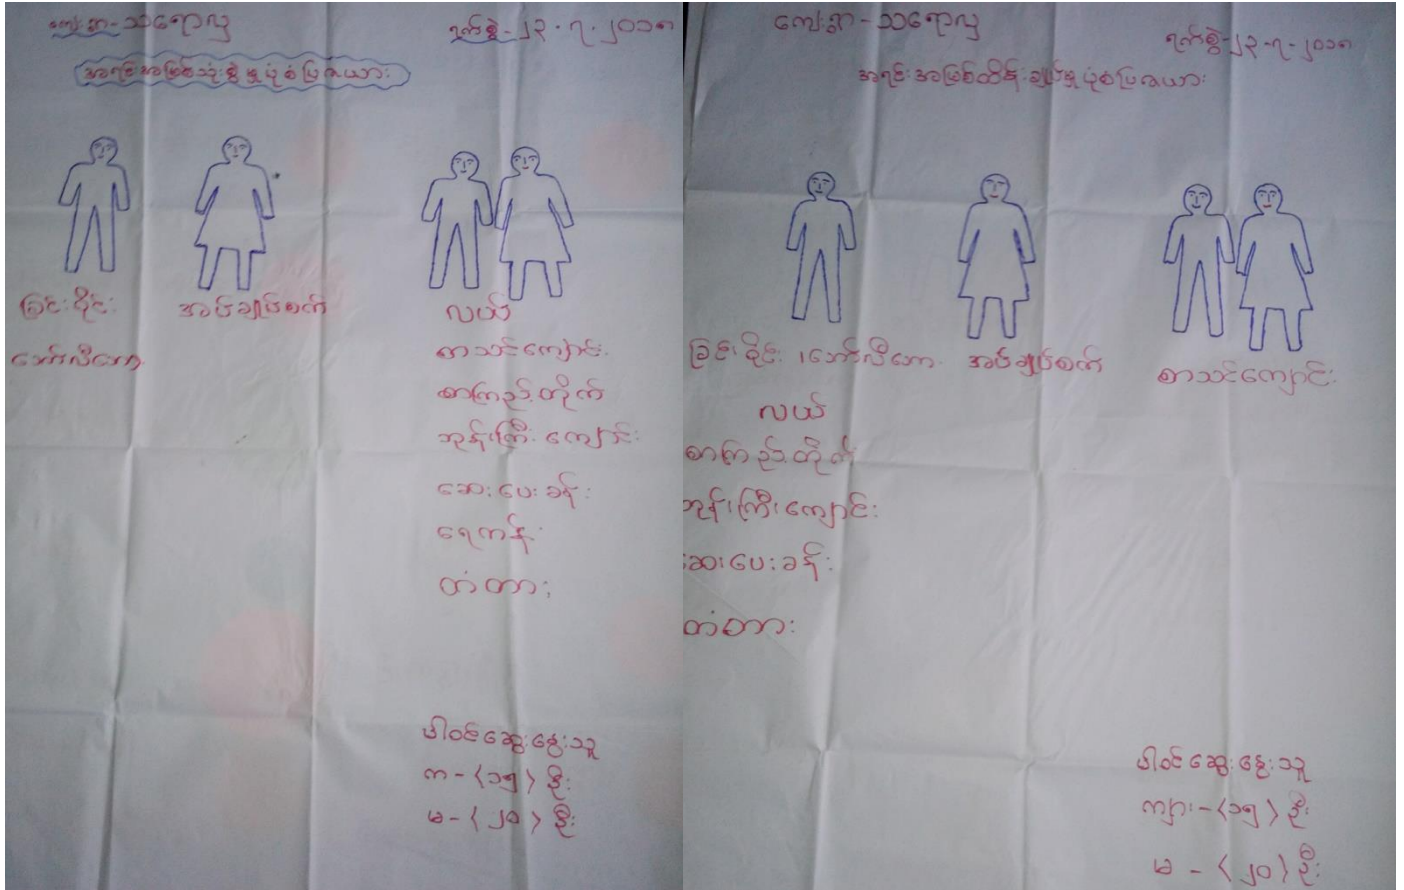 ကျေးရွာ-သရောလှ
ရက်စွဲ-၂၃.၇.၂၀၁၈
အရင်းအမြစ်သုံးစွဲမှုပုံစံပြဇယား
ခြင်းဝိုင်း
အပ်ချုပ်စက်
လယ်
ဘော်လီဘော
စာသင်ကျောင်း
စာကြည့်တိုက်
ဘုန်းကြီးကျောင်း
ဆေးပေးခန်း
ရေကန်
တံတား
ပါဝင်ဆွေးနွေးသူ
က-(၁၅)ဦး
မ-(၂၀)ဦး
ကျေးရွာ-သရောလှ
ရက်စွဲ-၂၃-၇-၂၀၁၈
အရင်းအမြစ်ထိန်းချုပ်မှုပုံစံပြဇယား
ခြင်းဝိုင်း၊ဘော်လီဘော
အပ်ချုပ်စက်
စာသင်ကျောင်း
လယ်
စာကြည့်တိုက်
ဘုန်းကြီးကျောင်း
ဆေးပေးခန်း
တံတား
ပါဝင်ဆွေးနွေးသူ
ကျား-(၁၅)ဦး
မ-(၂၀)ဦး